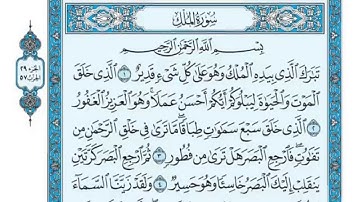 سُورَةُ المُلْكِ
الجزء ٢٩
الحزب ٥٧
بِسْمِ اللَّهِ الرَّحْمَٰنِ الرَّحِيمِ
تَبَارَكَ الَّذِي بِيَدِهِ الْمُلْكُ وَهُوَ عَلَىٰ كُلِّ شَيْءٍ قَدِيرٌ ١ الَّذِي خَلَقَ
الْمَوْتَ وَالْحَيَوٰةَ لِيَبْلُوَكُمْ أَيُّكُمْ أَحْسَنُ عَمَلًا وَهُوَ الْعَزِيزُ الْغَفُورُ
٢ الَّذِي خَلَقَ سَبْعَ سَمَٰوَٰتٍ طِبَاقًا مَّا تَرَىٰ فِي خَلْقِ الرَّحْمَٰنِ مِن
تَفَٰوُتٍ فَارْجِعِ الْبَصَرَ هَلْ تَرَىٰ مِن فُطُورٍ ٣ ثُمَّ ارْجِعِ الْبَصَرَ كَرَّتَيْنِ
يَنقَلِبْ إِلَيْكَ الْبَصَرُ خَاسِئًا وَهُوَ حَسِيرٌ ٤ وَلَقَدْ زَيَّنَّا السَّمَآءَ